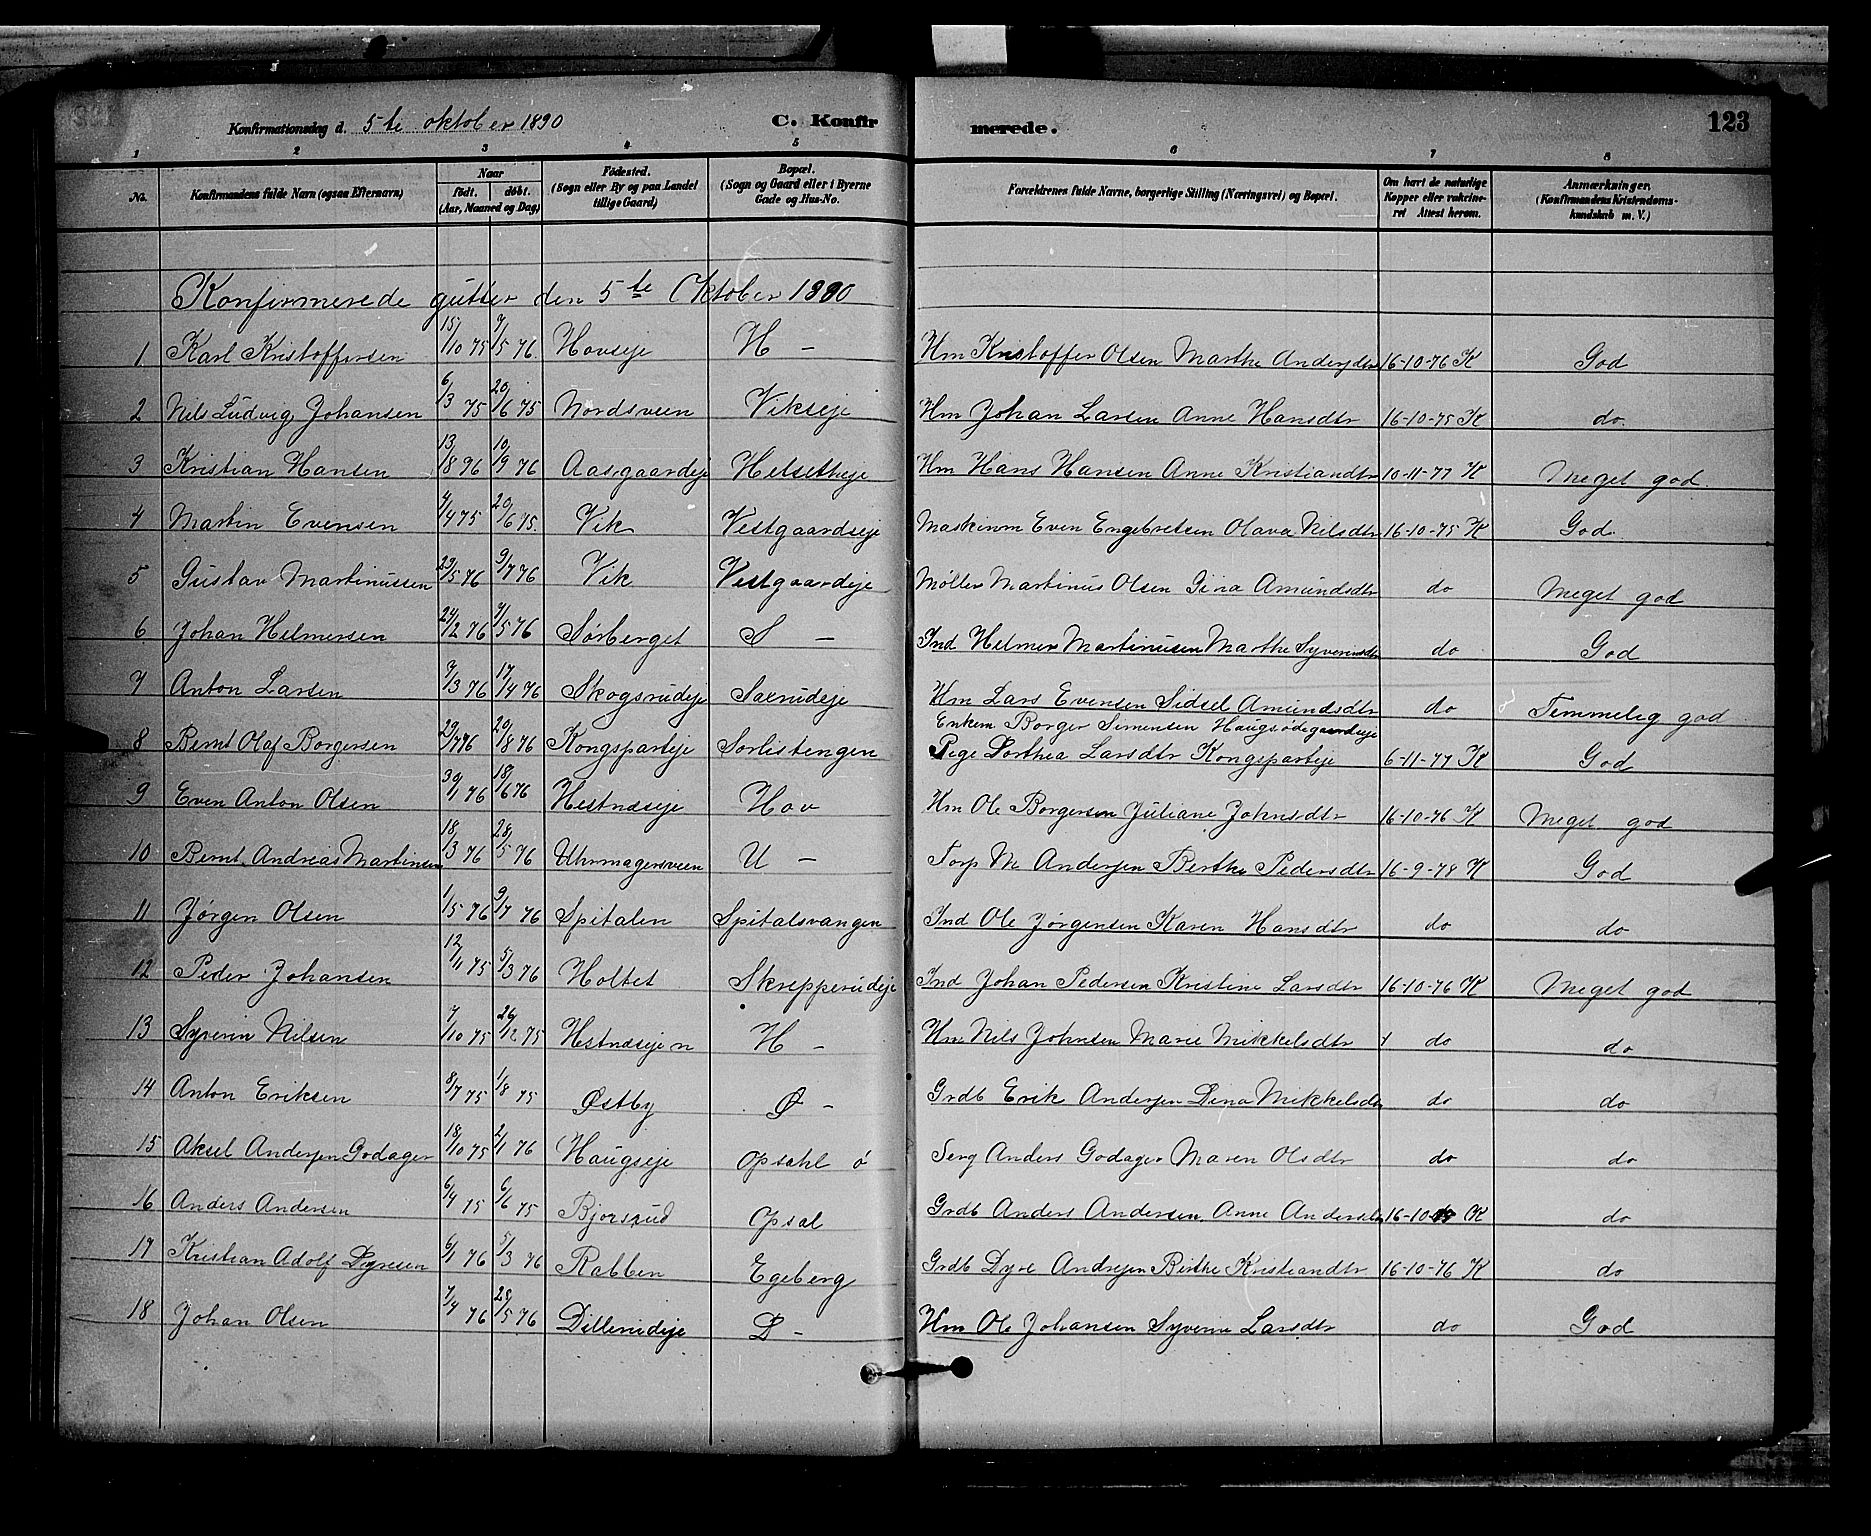 Konfirmationsdag d. 5te oktober 1890 C. Konfirmerede. 123
1 2 3 4 5 6 7 8
No. Konfirmandens fulde Navn (ogsaa Efternavn) Naar født. døbt. (Aar, Maaned og Dag) Fødested. (Sogn eller By og paa Landet tillige Gaard) Bopæl. (Sogn og Gaard eller i Byerne Gade og Hus-No. Forældrenes fulde Navne, borgerlige Stilling (Næringsvei) og Bopæl. Om havt de naturlige Kopper eller vakcineret Attest herom. Anmærkninger. (Konfirmandens Kristendomskundskab m. V.)
Konfirmerede gutter den 5te Oktober 1890
1 Karl Kristoffersen 15/10 75 7/5 76. Hovseje H – Hm Kristoffer Olsen Marthe Andersdtr 16-10-76 K God
2 Nils Ludvig Johansen 6/3 75 20/6 75 Nordsveen Vikseje Hm Johan Larsen Anne Hansdtr 16-10-75 K do.
3 Kristian Hansen 13/8 76 10/9 76 Aasgaardeje Helsetheje Hm Hans Hansen Anne Kristiandtr 10-11-77 K Meget god
4 Martin Evensen 4/4 75 20/6 75. Vik Vestgaardseje Maskinm Even Engebretsen Olava Nilsdtr 16-10-75 K God
5 Gustav Martinussen 23/5 76 9/7 76 Vik Vestgaardeje Møller Martinus Olsen Gina Amundsdtr do Meget god
6 Johan Helmersen 24/2 76 7/5 76 Sørberget S – Ind Helmer Martinusen Marthe Syverinsdtr do God
7 Anton Larsen 7/3 76 17/4 76 Skogsrudeje Saxrudeje Hm Lars Evensen Sidsel Amundsdtr do Temmelig god
8 Bernt Olaf Borgersen 29/7 76 20/8 76 Kongsparteje Sorlistengen Enkem Borger Simensen Haugsødegaardseje
Pige Dorthea Larsdtr Kongsparteje 6-11-77 K God
9 Even Anton Olsen 30/1 76 18/6 76 Hestnæseje Hov Hm Ole Borgersen Juliane Johnsdtr 16-10-76 K Meget god
10 Bernt Andreas Martinsen 18/3 76 28/5 76 Uhrmagersveen U – Torp M Andersen Berthe Pedersdtr 16-9-78 K God
11 Jørgen Olsen 1/5 76 9/7 76 Spitalen Spitalsvangen Ind Ole Jørgensen Karen Hansdtr do do
12 Peder Johansen 12/11 75 5/3 76 Holtet Skrepperudeje Ind Johan Pedersen Kristine Larsdtr 16-10-76 K Meget god
13 Syverin Nilsen 7/10 75 26/12 75 Hestnæseje n H – Hm Nils Johnsen Marie Mikkelsdtr do do
14 Anton Eriksen 8/7 75 1/8 75 Østby Ø – Grdb Erik Andersen Dina Mikkelsdtr do do
15 Aksel Andersen Godager 18/10 75 2/1 76 Haugseje Opsahl ø Serg Anders Godager Maren Olsdtr do do
16 Anders Andersen 6/4 75 6/6 75 Bjorsrud Opsal Grdb Anders Andersen Anne Andersdtr 16-10 K do
17 Kristian Adolf Dyresen 6/1 76 5/3 76 Rabben Egeberg Grdb Dyre Andersen Berthe Kristiandtr 16-10-76 K do
18 Johan Olsen 7/4 76 28/5 76 Dillerudeje D – Hm Ole Johansen Syverine Larsdtr do God